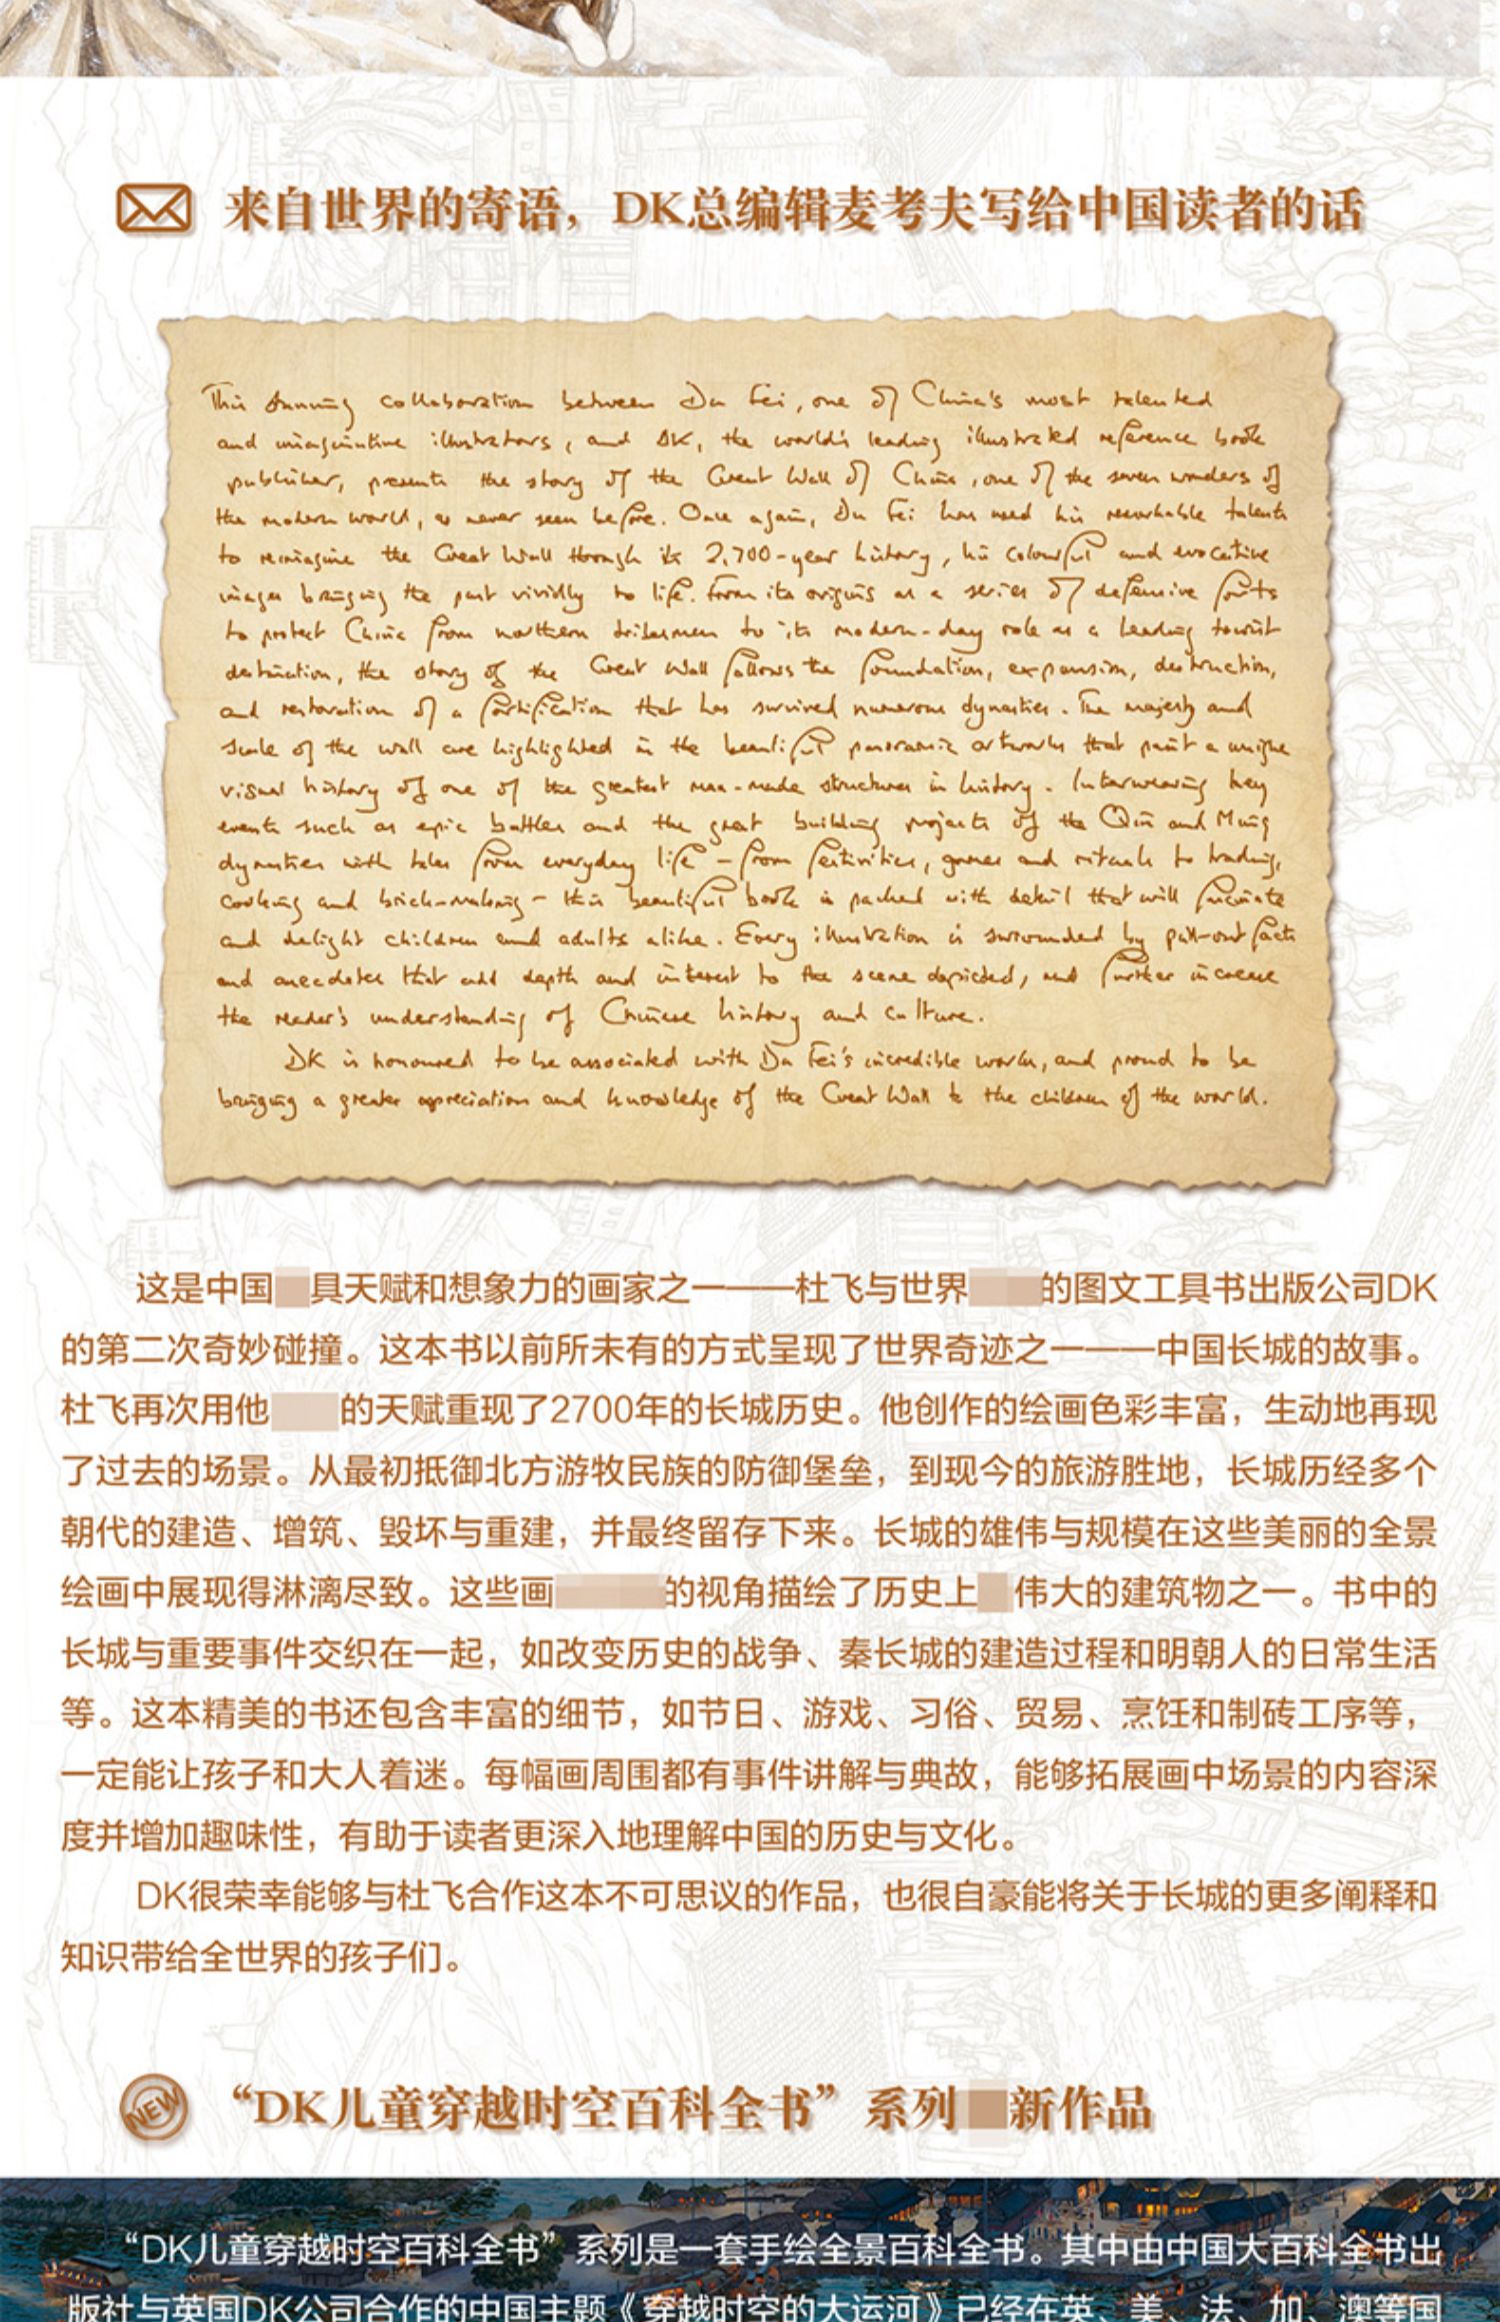 来自世界的寄语，DK总编辑麦考夫写给中国读者的话
This stunning collaboration between Du Fei, one of China's most talented
and imaginative illustrators, and DK, the world's leading illustrated reference book
publisher, presents the story of the Great Wall of China, one of the seven wonders of
the modern world, as never seen before. Once again, Du Fei has used his remarkable talents
to reimagine the Great Wall through its 2,700-year history, his colourful and evocative
images bringing the past vividly to life. From its origins as a series of defensive forts
to protect China from northern tribesmen to its modern-day role as a leading tourist
destination, the story of the Great Wall follows the foundation, expansion, destruction,
and restoration of a fortification that has survived numerous dynasties. The majesty and
scale of the wall are highlighted in the beautiful panoramic artworks that paint a unique
visual history of one of the greatest man-made structures in history. Interweaving key
events such as epic battles and the great building projects of the Qin and Ming
dynasties with tales from everyday life – from festivities, games and rituals to trading,
cooking and brick-making – this beautiful book is packed with detail that will fascinate
and delight children and adults alike. Every illustration is surrounded by pull-out facts
and anecdotes that add depth and interest to the scene depicted, and further increase
the reader's understanding of Chinese history and culture.
DK is honoured to be associated with Du Fei's incredible work, and proud to be
bringing a greater appreciation and knowledge of the Great Wall to the children of the world.
这是中国具天赋和想象力的画家之一——杜飞与世界的图文工具书出版公司DK
的第二次奇妙碰撞。这本书以前所未有的方式呈现了世界奇迹之一——中国长城的故事。
杜飞再次用他的天赋重现了2700年的长城历史。他创作的绘画色彩丰富，生动地再现
了过去的场景。从最初抵御北方游牧民族的防御堡垒，到现今的旅游胜地，长城历经多个
朝代的建造、增筑、毁坏与重建，并最终留存下来。长城的雄伟与规模在这些美丽的全景
绘画中展现得淋漓尽致。这些画的视角描绘了历史上伟大的建筑物之一。书中的
长城与重要事件交织在一起，如改变历史的战争、秦长城的建造过程和明朝人的日常生活
等。这本精美的书还包含丰富的细节，如节日、游戏、习俗、贸易、烹饪和制砖工序等，
一定能让孩子和大人着迷。每幅画周围都有事件讲解与典故，能够拓展画中场景的内容深
度并增加趣味性，有助于读者更深入地理解中国的历史与文化。
DK很荣幸能够与杜飞合作这本不可思议的作品，也很自豪能将关于长城的更多阐释和
知识带给全世界的孩子们。
NEW “DK儿童穿越时空百科全书”系列新作品
“DK儿童穿越时空百科全书”系列是一套手绘全景百科全书。其中由中国大百科全书出
版社与英国DK公司合作的中国主题《穿越时空的大运河》已经在英、美、法、加、澳等国